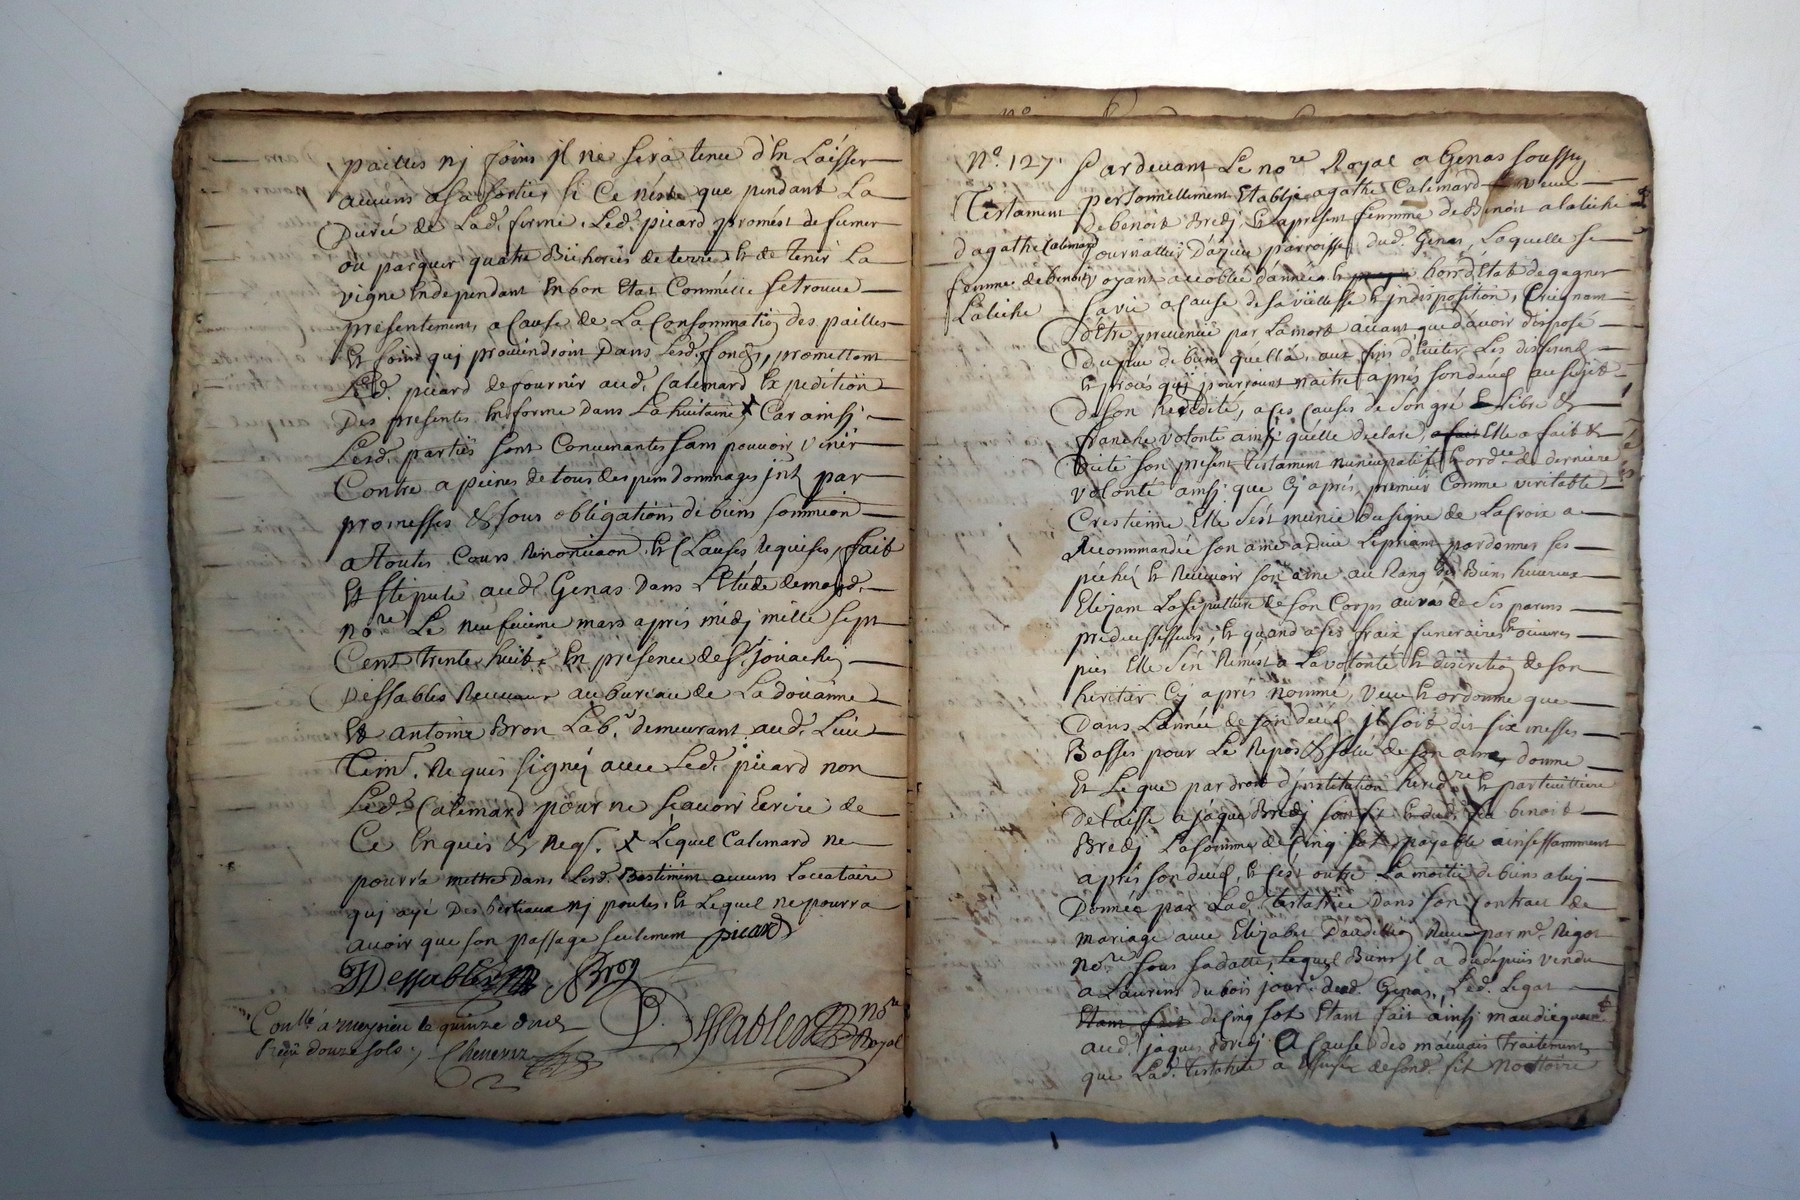 pailles nj foins jl ne sera tenu d'En Laisser
aucuns a sa sortie, si Ce n'est que pendant La
Durée de Lad. ferme, Led. picard promést de fumer
ou parquer quatre Bicherées de terre, Et de Tenir La
vigne En dependant En bon Etat Comme Elle se trouve
presentement, a Cause de La Consommation des pailles
Et foins quj proviendront Dans Lesd. fonds, promettant
Led. picard de fournir aud. Calemard Expedition
Des presentes En forme Dans La huitaine, x Car ainsj
Lesd. parties sont Convenantes sans pouvoir venir
Contre a peines de tous despens dommages jnt. par
promesses & sous obligations de biens soumission
a toutes Cours Renonciaon Et Clauses Requises, fait
Et stipulé aud. Genas Dans L'Etude de moyd.
nore. Le neufvieme mars apres midj mille sept
Cent trente huit, En presence de Sr. joüachin
Dessables Receveur au bureau de La doüanne
Et antoine Bron Labr. demeurant aud. Lieu
Temn. Requis signéz avec Led. picard non
Led. Calemard pour ne sçavoir Ecrire de
Ce Enquis & Reqs. x Lequel Calemard ne
pourra mettre Dans Lesd. Bastiment aucuns Locataire
quj ayé Des bestiaux nj poules, Et Lequel ne pourra
avoir que son passage seulement picard
Dessables Bron
Conllé a meyzieu le quinze dud.
Reçu douze sols
Dessables nore
Royal
No. 127. Pardevant Le nore Royal a Genas soussig
Testament personnellement Establie agathe Calemard veuve
de benoit Bredj, Et a present femme de Benoit a latiche
d'agathe Calemard journallier D'azieu parroisse dud. Genas, Laquelle se
femme de benoit voyant accablée d'années Et hors d'Etat de gagner
Latiche sa vie a Cause de sa viellesse Et jndisposition, Craignant
D'être prevenüe par La mort avant que d'avoir disposé
du peu de biens qu'Ella, aux fins d'Eviter Les differend
Et procés quj pourroient naitre apres son deceds au sujet
De son heredité, a ces Causes de son gré Libre &
franche volonté ainsj qu'elle declare, Elle a fait &
Dicté son present testament nuncupatif Et ordre de derniere
volonté ainsj que Cj aprés, premier Comme veritable
Crestienne Elle s'est munie du signe de La Croix a
Recommandée son ame a dieu Le priant pardonner ses
péchéz Et Recevoir son ame au Rang des Biens heureux
Elizant La sepulture de son Corps au vas de ses parens
predecesseurs, Et quand a ses fraix funeraires Et oeuvres
pies Elle s'en Remest a La volonté Et discretion de son
heritier Cj aprés nommé, veut Et ordonne que
Dans L'année de son deceds jl soit dit six messes
Basses pour Le Repos & salut de son ame, donne
Et Legue par droit d'jnstitution heredre. Et particulliere
delaisse a jâque Bredj son fils Et dud. feu benoit
Bredj La somme de Cinq sols payable
aprés son deceds, Et C'est outre La moitié de biens a luj
Donnée par Lad. testatrice Dans son Contract de
mariage avec Elizabet Daudillion Receu par me. Rigot
nore. sous sa datte, Lequel Biens jl a du depuis vendu
a Laurens dubois jourr. dud. Genas, Led. Legat
de Cinq sols Etant fait ainsj
aud. jaques Bredj a Cause des mauvais traitement
que Lad. testatrice a Essuyée de sond. fils Nottoire